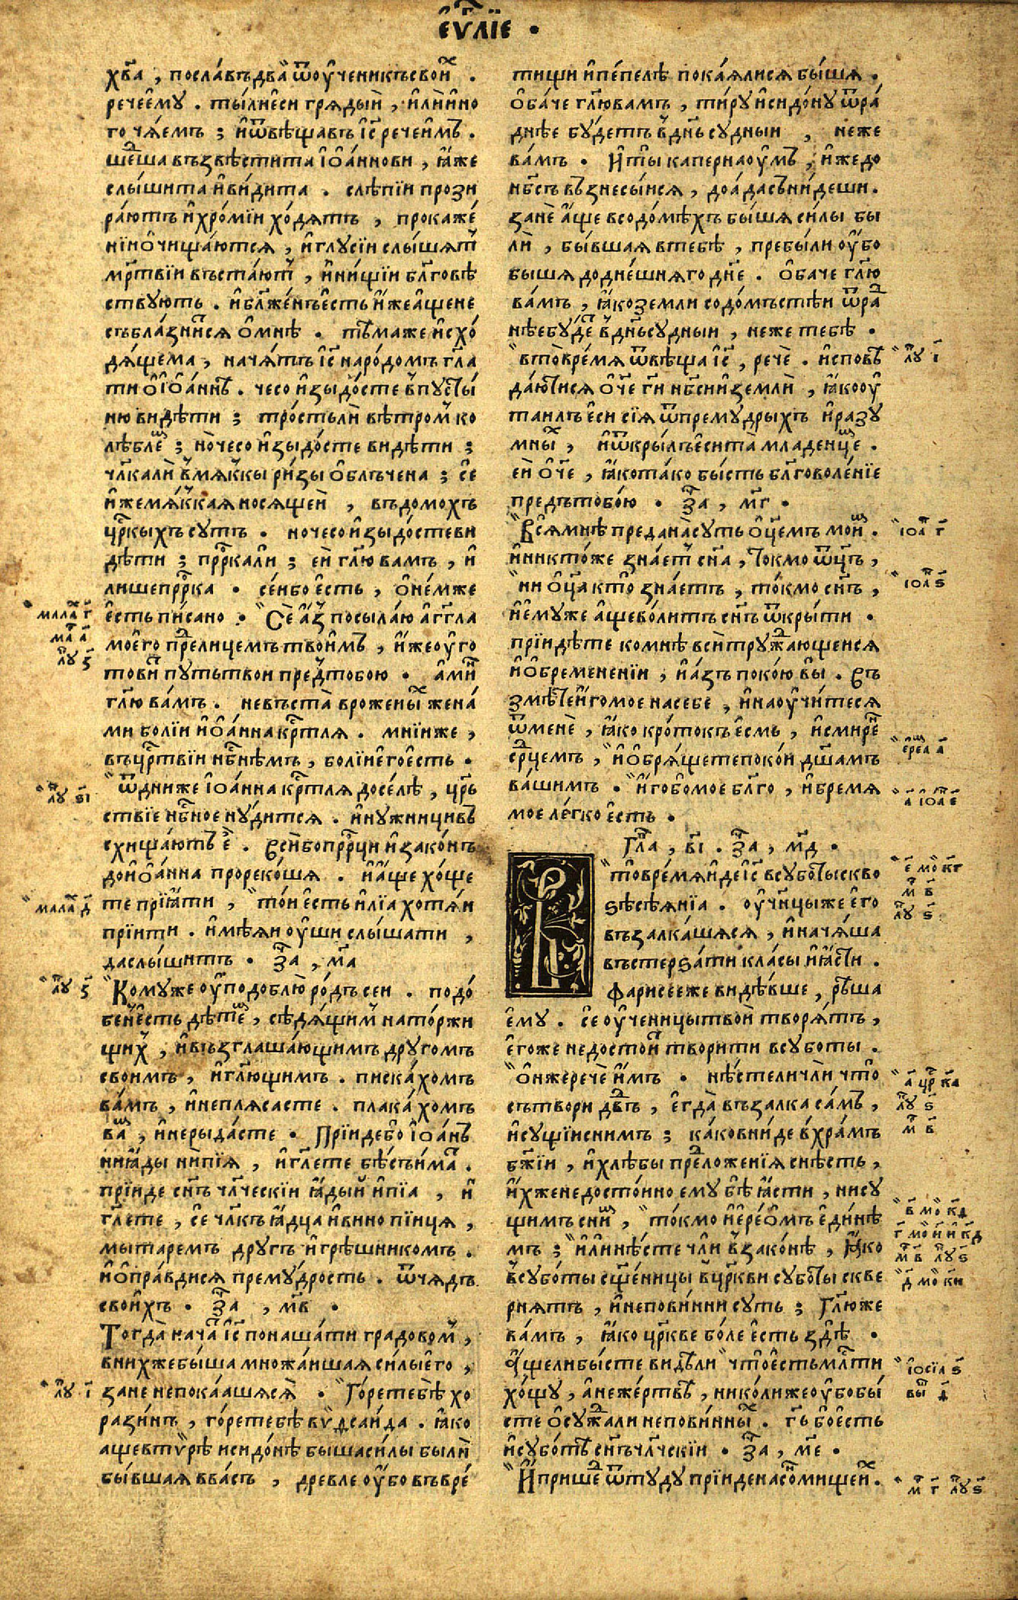 є҆ѵⷢ҇лїє .
хв҃а , посла́въ два̀ ѿ оу҆чени́къ свои́хъ .
рече є҆мꙋ . ты́ ли є҆сѝ гряды́й , и҆лѝ и҆но
го ча́емъ ; и҆ ѿвѣща́въ і҆с҃ рече и҆́мъ .
ше́дша възвѣсти́та і҆ѡа́ннови , ꙗ҆́же
слы́шита и҆ ви́дита . слѣпі́и прози
ра́ютъ и҆ хро́міи хо́дятъ , прокаже́
ніи ѡ҆чища́ются , и҆ глꙋсі́и слы́шятъ
мр҃твіи въстаю́тъ , и҆ ни́щіи бл҃говѣ
ствꙋютъ . и҆ бл҃же́нъ є҆сть и҆́же а҆́ще не
съблазни́тся ѡ҆ мнѣ̀ . тѣ́ма же и҆схо́
дящема , нача́тъ і҆с҃ наро́домъ гл҃а
ти ѡ҆ і҆ѡа́ннѣ . чесо̀ и҆зыдо́сте в пꙋсты́
ню ви́дѣти ; тро́сть ли вѣ́тромъ ко
лѣ́блемꙋ ; но чесо̀ и҆зыдо́сте ви́дѣти ;
чл҃ка ли в мя́ккы ри́зы ѡ҆блъче́на ; се
и҆́же мя́ккая нося́щеи , въ домо́хъ
цр҃кы́хъ сꙋть . но чесо̀ и҆зыдо́сте ви
дѣти ; прⷪ҇рка ли ; е́й гл҃ю ва́мъ , и҆
ли́ше прⷪ҇рка . се́й бо є҆́сть , ѡ҆ не́мже
є҆́сть пи́сано . Се а҆́зъ посыла́ю а҆́гг҃ла
моего̀ преⷣ лице́мъ твои́мъ , и҆́же оу҆го
то́витъ пꙋть тво́й преⷣ тобо́ю . а҆ми́нь
гл҃ю ва́мъ . не въста̀ в роже́ныхъ жена́
ми бо́ліи и҆ѡа́нна крⷭ҇тля . мні́и же ,
въ црⷭ҇твіи нбⷭ҇нѣмъ , бо́ліи є҆го̀ є҆́сть .
ѿ дні́и же і҆ѡа́нна крⷭ҇тля досе́лѣ , црⷭ҇
ствіе нбⷭ҇ное нꙋ́дится . и҆ нꙋ́жницы въ
схища́ютъ є҆̀ . Вси́ бо прⷪ҇рци и҆ зако́нъ
до і҆ѡа́нна пророко́ша . и҆ а҆́ще хо́ще
те прїѧ́ти , то́й є҆́сть и҆лїа̀ хотя́й
прїити . и҆мѣ́яй оу҆́ши слы́шати ,
да слы́шитъ . за҄ , м҃а
Комꙋ́ же оу҆подо́блю ро́дъ се́й . подо́
бенъ є҆́сть дѣ́темъ , сѣдя́щимъ на то́ржи
щихъ , и҆ възглаша́ющимъ дрꙋго́мъ
свои́мъ , и҆ гл҃ющимъ . писка́хомъ
ва́мъ , и҆ не пляса́сте . плака́хомъ
ва́мъ , и҆ не рыда́сте . Прїи́де бо і҆ѡа́нъ
ни ꙗ҆ды́ ни пїя̀ , и҆ гл҃ете бѣ́съ и҆́мать .
прїи́де сн҃ъ чл҃ческїи ꙗ҆ды́й и҆ пїа̀ , и҆
гл҃ете , се чл҃къ ꙗ҆дца и҆ винопі́йця ,
мытаре́мъ дрꙋ́гъ и҆ грѣ́шникомъ .
и҆ ѡ҆правди́ся премꙋ́дрость . ѿ ча́дъ
свои́хъ . за҄ , м҃в .
Тогда̀ нача́тъ і҆с҃ поноша́ти градово́мъ ,
в ни́хже бы́ша мно́жайшая си́лы є҆го̀ ,
зане не пока́ашяся . Го́ре тебѣ̀ хо
рази́нъ , го́ре тебѣ̀ виⷴ҇саи́да . ꙗ҆́ко
а҆́ще в ту́рѣ и҆ сидо́нѣ бы́ша си́лы бы́ли
бы́вшая в ва́съ , дре́вле оу҆́бо въ вре́
тищи и҆ пе́пелѣ пока́ялися бы́шя .
ѻ҆ба́че гл҃ю ва́мъ , ти́рꙋ и҆ сидо́нꙋ ѿра́
днѣе бꙋ́детъ в дн҃ь сꙋдныи , неже
ва́мъ . И҆ ты̀ капернаоу́мъ , и҆́же до
нб҃съ възнесы́ися , до а҆́да сни́деши .
занѐ а҆́ще в содо́мѣхъ бы́шя си́лы бы
лѝ , бы́вшая в тебѣ̀ , пребы́ли оу҆́бо
бы́шя до дне́шняго дн҃е . ѻ҆ба́че гл҃ю
ва́мъ , ꙗ҆́ко земли содо́мъстѣи ѿра
нѣе бꙋ́деⷮ в дн҃ь сꙋдныи , неже тебѣ̀ .
в то вре́мя ѿвѣща і҆с҃ , речѐ . и҆сповѣ
даютися ѻ҆́че гⷭ҇и нбⷭ҇ни и҆ землѝ , ꙗ҆́ко оу҆
таи́лъ є҆сѝ сїя̀ ѿ премꙋ́дрыхъ и҆ разꙋ
мныхъ , и҆ ѿкры́лъ є҆сѝ та̀ младе́нцемъ .
е́й ѻ҆́че , ꙗ҆́ко та́ко бы́сть бл҃говоле́нїе
предъ тобо́ю . за҄ , м҃г .
Вся̀ мнѣ̀ предана̀ сꙋть ѻ҆ц҃емъ мои́мъ .
и҆ никто́же зна́етъ сн҃а , то́кмо ѻ҆ц҃ъ ,
ни ѻ҆ц҃а кто̀ зна́етъ , то́кмо сн҃ъ ,
и҆ є҆мꙋже а҆́ще во́литъ сн҃ъ ѿкры́ти .
прїидѣ́те ко мнѣ̀ всѝ трꙋжда́ющеися
и҆ ѡ҆бремене́нїи , и҆ а҆́зъ поко́ю вы̀ . Въ
змѣ́те и҆́го мое на себе , и҆ наоу҆чи́теся
ѿ менѐ , ꙗ҆́ко кро́токъ є҆́смь , и҆ смире́нъ
срⷣцемъ , и҆ ѡ҆бря́щете поко́й дш҃амъ
ва́шимъ . и҆́го бо мое бл҃го , и҆ бре́мя
мое ле́гко є҆́сть .
Гла҄ , в҃і . за҄ , м҃д .
В то вре́мя и҆́де і҆с҃ в сꙋбо́ты скво
ѕѣ сѣ́янїа . оу҆чн҃цы же є҆го̀
възалка́шяся , и҆ нача́ша
въстерѕа́ти кла́сы и҆ ꙗ҆́сти .
фарисе́е же ви́дѣвше , рѣ́ша
є҆мꙋ . се оу҆ченицы́ твоѝ творя́тъ ,
є҆го́же не досто́итъ твори́ти в сꙋбо́ты .
ѻ҆н же речѐ и҆́мъ . нѣ́сте ли чли́ что̀
сътвори дв҃дъ , є҆гда̀ възалка са́мъ ,
и҆ сꙋщіи с ни́мъ ; ка́ко вни́де в хра́мъ
бж҃їи , и҆ хлѣ́бы преⷣложе́нїя снѣ́сть ,
и҆́хже не досто́ино є҆мꙋ бѣ̀ ꙗ҆́сти , ни сꙋ
щимъ с ни́мъ , то́кмо и҆ере́ѡмъ є҆ди́нѣ
мъ ; и҆лѝ нѣ́сте члѝ в зако́нѣ , ꙗ҆́ко
в сꙋбо́ты сщ҃е́ницы в цр҃кви сꙋбо́ты скве
рня́тъ , и҆ непови́нни сꙋть ; Гл҃ю же
ва́мъ , ꙗ҆́ко цр҃кве бо́ле є҆́сть здѣ̀ .
А҆́ще ли бы́сте ви́дѣли что̀ є҆́сть млⷭ҇ти
хо́щꙋ , а҆ не же́ртвѣ , николи́же оу҆́бо бы́
сте ѡ҆сꙋжда́ли непови́нныхъ . гⷭ҇ь бо є҆́сть
и҆ сꙋбо́тѣ сн҃ъ чл҃ческїи . за҄ , м҃е .
И҆ прише́дъ ѿтꙋ́дꙋ прїи́де на со́нмище и҆́хъ .
мала҄ г҃
ма҄ а҃
лꙋ҄ з҃
лꙋ҄ ѕ҃і
мала҄ д҃
лꙋ҄ з҃
лꙋ҄ і҃
лꙋ҄ і҃
іѡа҄ г҃
іѡа҄ ѕ҃